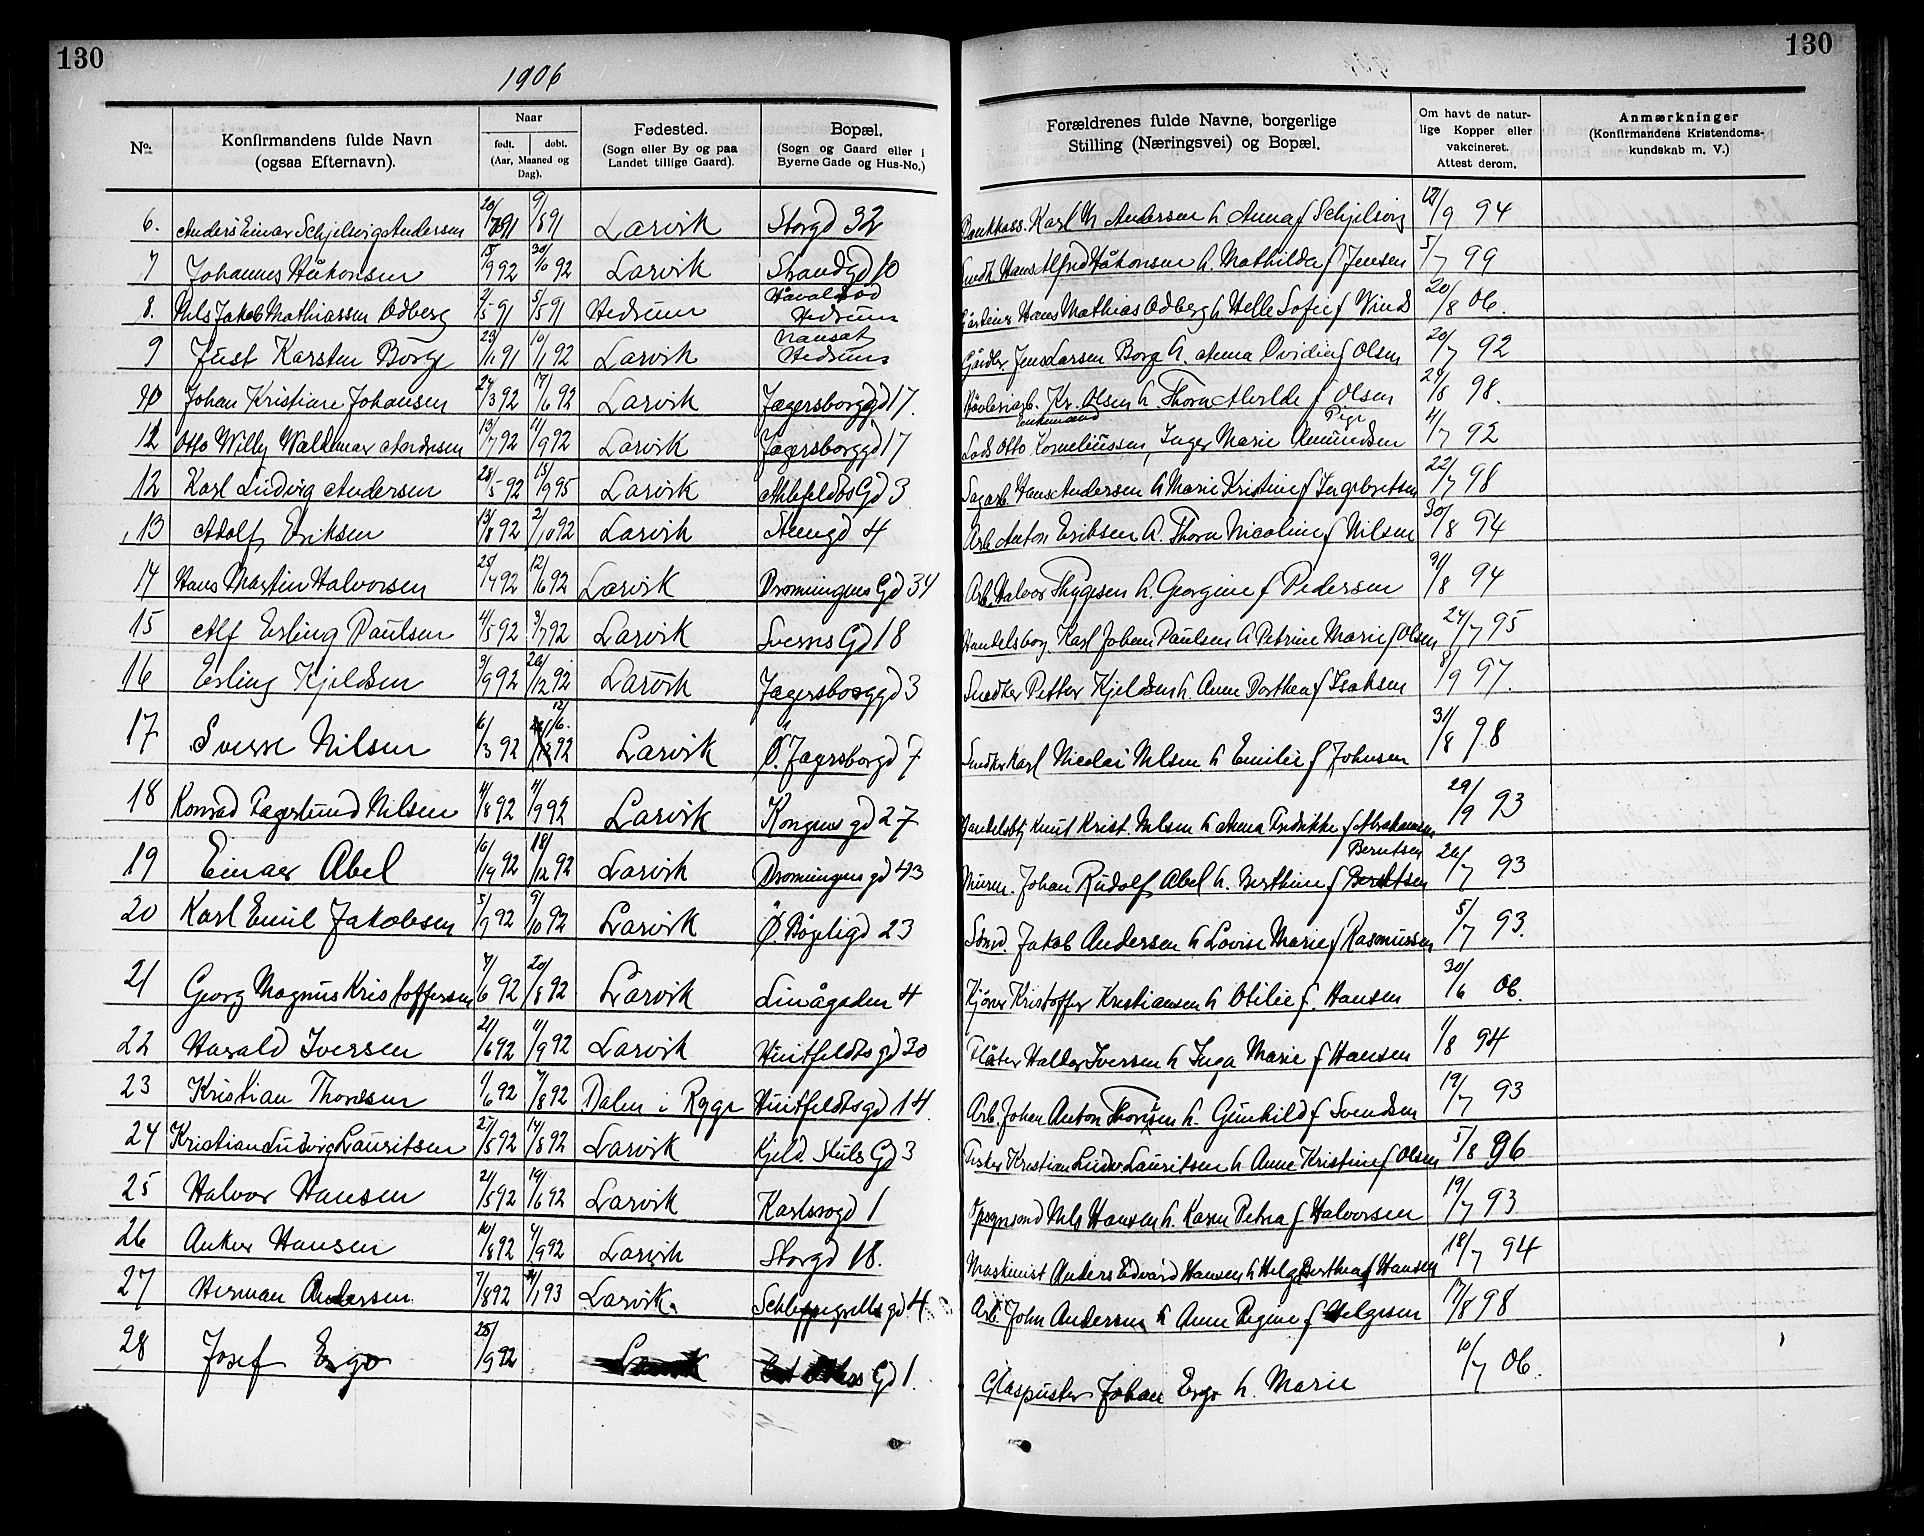 130
130
1906
No. Konfirmandens fulde Navn (ogsaa Efternavn). Naar født. døbt. (Aar, Maaned og Dag). Fødested. (Sogn eller By og paa Landet tillige Gaard). Bopæl. (Sogn og Gaard eller i Byerne Gade og Hus-No.) Forældrenes fulde Navne, borgerlige Stilling (Næringsvei) og Bopæl. Om havt de naturlige Kopper eller vakcineret. Attest derom. Anmærkninger (Konfirmandens Kristendomskundskab m. V.)
6. Anders Einar Schjelvig Andersen 20/7 91 9/8 91 Larvik Storgd 32 Karl Andersen h Anna f Schjelvig /9 94
7 Johannes Håkonsen 15/9 92 30/10 92 Larvik Strandgd 10 Hans Alfred Håkonsen h. Mathilda f Jensen 5/7 99
8. Nils Jakob Mathiassen Odberg 2/5 91 5/5 91 Hedrum Hedrum Hans Mathias Odberg h Helle Sofie f Vind 20/8 06.
9 Just Karsten Borge 23/11 91 10/1 92 Larvik Nanset Hedrum Gårdbr Jens Larsen Borge h. Anna Ovidia f Olsen 20/7 92
Johan Kristian Johansen 27/3 92 17/6 92 Larvik Jægersborggd 17. Kr. Olsen h. Thora Alvilde f Olsen 24/8 98.
12 Otto Willy Waldemar Andresen 13/7 92 11/9 92 Larvik Jægersborggd 17 Lods Otto Korneliussen, enkemand Inger Marie Amundsen Pige 4/7 92
12 Karl Ludvig Andersen 28/5 92 15/9 95 Larvik Ahlefeldts Gd 3 Sagarb. Hans Andersen h Marie Kristine f Ingebretsen 22/7 98
13 Adolf Eriksen 13/8 92 2/10 92 Larvik Stengd 4 Arb Anton Eriksen h. Thora Nicoline f Nilsen 30/8 94
14 Hans Martin Halvorsen 25/7 92 12/6 92 Larvik Dronningens Gd 34 Arb. Halvor Thygesen h. Georgine f Pedersen 31/8 94
15 Alf Erling Paulsen 4/5 92 3/7 92 Larvik Sverres Gd 18 Handelsbog. Karl Johan Paulsen h Petrine Marie f Olsen 24/7 95
16 Erling Kjeldsen 3/9 92 26/12 92 Larvik Jægersborggd 3 Snedker Petter Kjeldsen h. Anne Dorthea f Isaksen 8/9 97.
17 Sverre Nilsen 6/3 92 12/6. 92 Larvik Ø. Jægersborgd 7 Snedker Karl Nicolai Nilsen h Emilie f Johnsen 31/8 98
18 Konrad Fagerlund Nilsen 4/8 92 11/9 92 Larvik Kongens gd 27 Handelsbtj Knut Krist. Nilsen h Anna Fredrikke f Abrahamsen 29/9 93
19 Einar Abel 10/9 92 18/12 92 Larvik Dronningens gd 43 Murm. Johan Rudolf Abel h. Berthine f Berntsen Berntsen 26/7 93
20 Karl Emil Jakobsen 5/9 92 9/10 92 Larvik Ø. Bøjeligd 23 Sømd. Jakob Andersen h Lovise Marie f Rasmussen 5/7 93.
21 Georg Magnus Kristoffersen 7/6 92 20/8 92 Larvik Linågaden 4 Kristoffer Kristiansen h Otilie f. Hansen 30/6 06.
22 Harald Iversen 21/6 92 11/9 92 Larvik Huitfeldts gd 30 Haldor Iversen h Inga Marie f Hansen 1/8 94
23 Kristian Thoresen 1/6 92 7/8 92 Dalen i Rygge Huitfeldtsgd 14 Arb. Johan Anton Thoresen h. Gunhild f Svendsen 19/7 93
24 Kristian Ludvig Lauritsen 27/5 92 14/8 92 Larvik Kjeld. Stubs Gd 3 Fisker Kristian Ludv. Lauritsen h Anne Kristine f Olsen 5/8 96
25 Halvor Hansen 21/5 92 19/6 92 Larvik Karlsrogd 1 Nils Hansen h. Karen Petra f Halvorsen 19/7 93
26 Anker Hansen 10/8 92 4/9 92 Larvik Storgd 18. Maskinist Anders Edvard Hansen h Helga Berthea f Hansen 18/7 94
27 Herman Andersen 7/8 92 /1 93 Larvik. Schleppegrells gd 4 Arb. John Andersen h Anne Regine f Helgesen 17/8 98
28 Josef Ergo 25/9 92 Larvik Gd 1. Glaspuster Johan Ergo h. Marie 10/7 06.